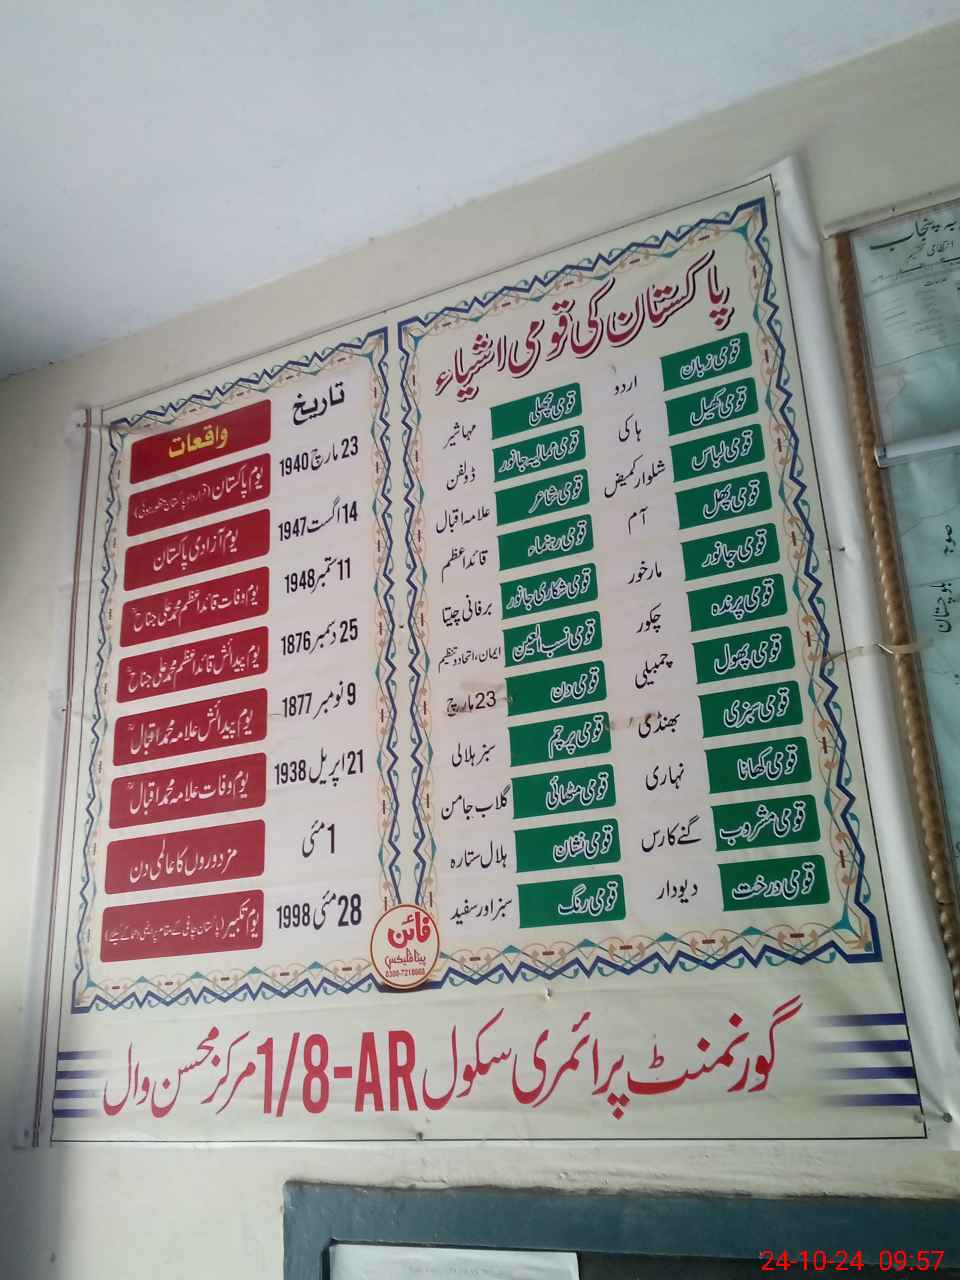 پاکستان کی قومی اشیاء
قومی زبان اردو
قومی کھیل ہاکی
قومی لباس شلوار کمیض
قومی پھل آم
قومی جانور مارخور
قومی پرندہ چکور
قومی پھول چمبیلی
قومی سبزی بھنڈی
قومی کھانا نہاری
قومی مشروب گنے کا رس
قومی درخت دیودار
قومی مچھلی مہاشیر
قومی ممالیہ جانور ڈولفن
قومی شاعر علامہ اقبال
قومی رہنماء قائداعظم
قومی شکاری جانور برفانی چیتا
قومی نسب العین ایمان، اتحاد و تنظیم
قومی دن 23 مارچ
قومی پرچم سبز ہلالی
قومی مٹھائی گلاب جامن
قومی نشان ہلال ستارہ
قومی رنگ سبز اور سفید
تاریخ واقعات
23 مارچ 1940 یوم پاکستان
14 اگست 1947 یوم آزادی پاکستان
11 ستمبر 1948 یوم وفات قائداعظم محمد علی جناح
25 دسمبر 1876 یوم پیدائش قائداعظم محمد علی جناح
9 نومبر 1877 یوم پیدائش علامہ محمد اقبال
21 اپریل 1938 یوم وفات علامہ محمد اقبال
1 مئی مزدوروں کا عالمی دن
28 مئی 1998 یوم تکبیر
فائن
پینا فلیکس
گورنمنٹ پرائمری سکول 1/8-AR مرکز محسن وال
پنجاب
صوبہ بلوچستان
24-10-24 09:57